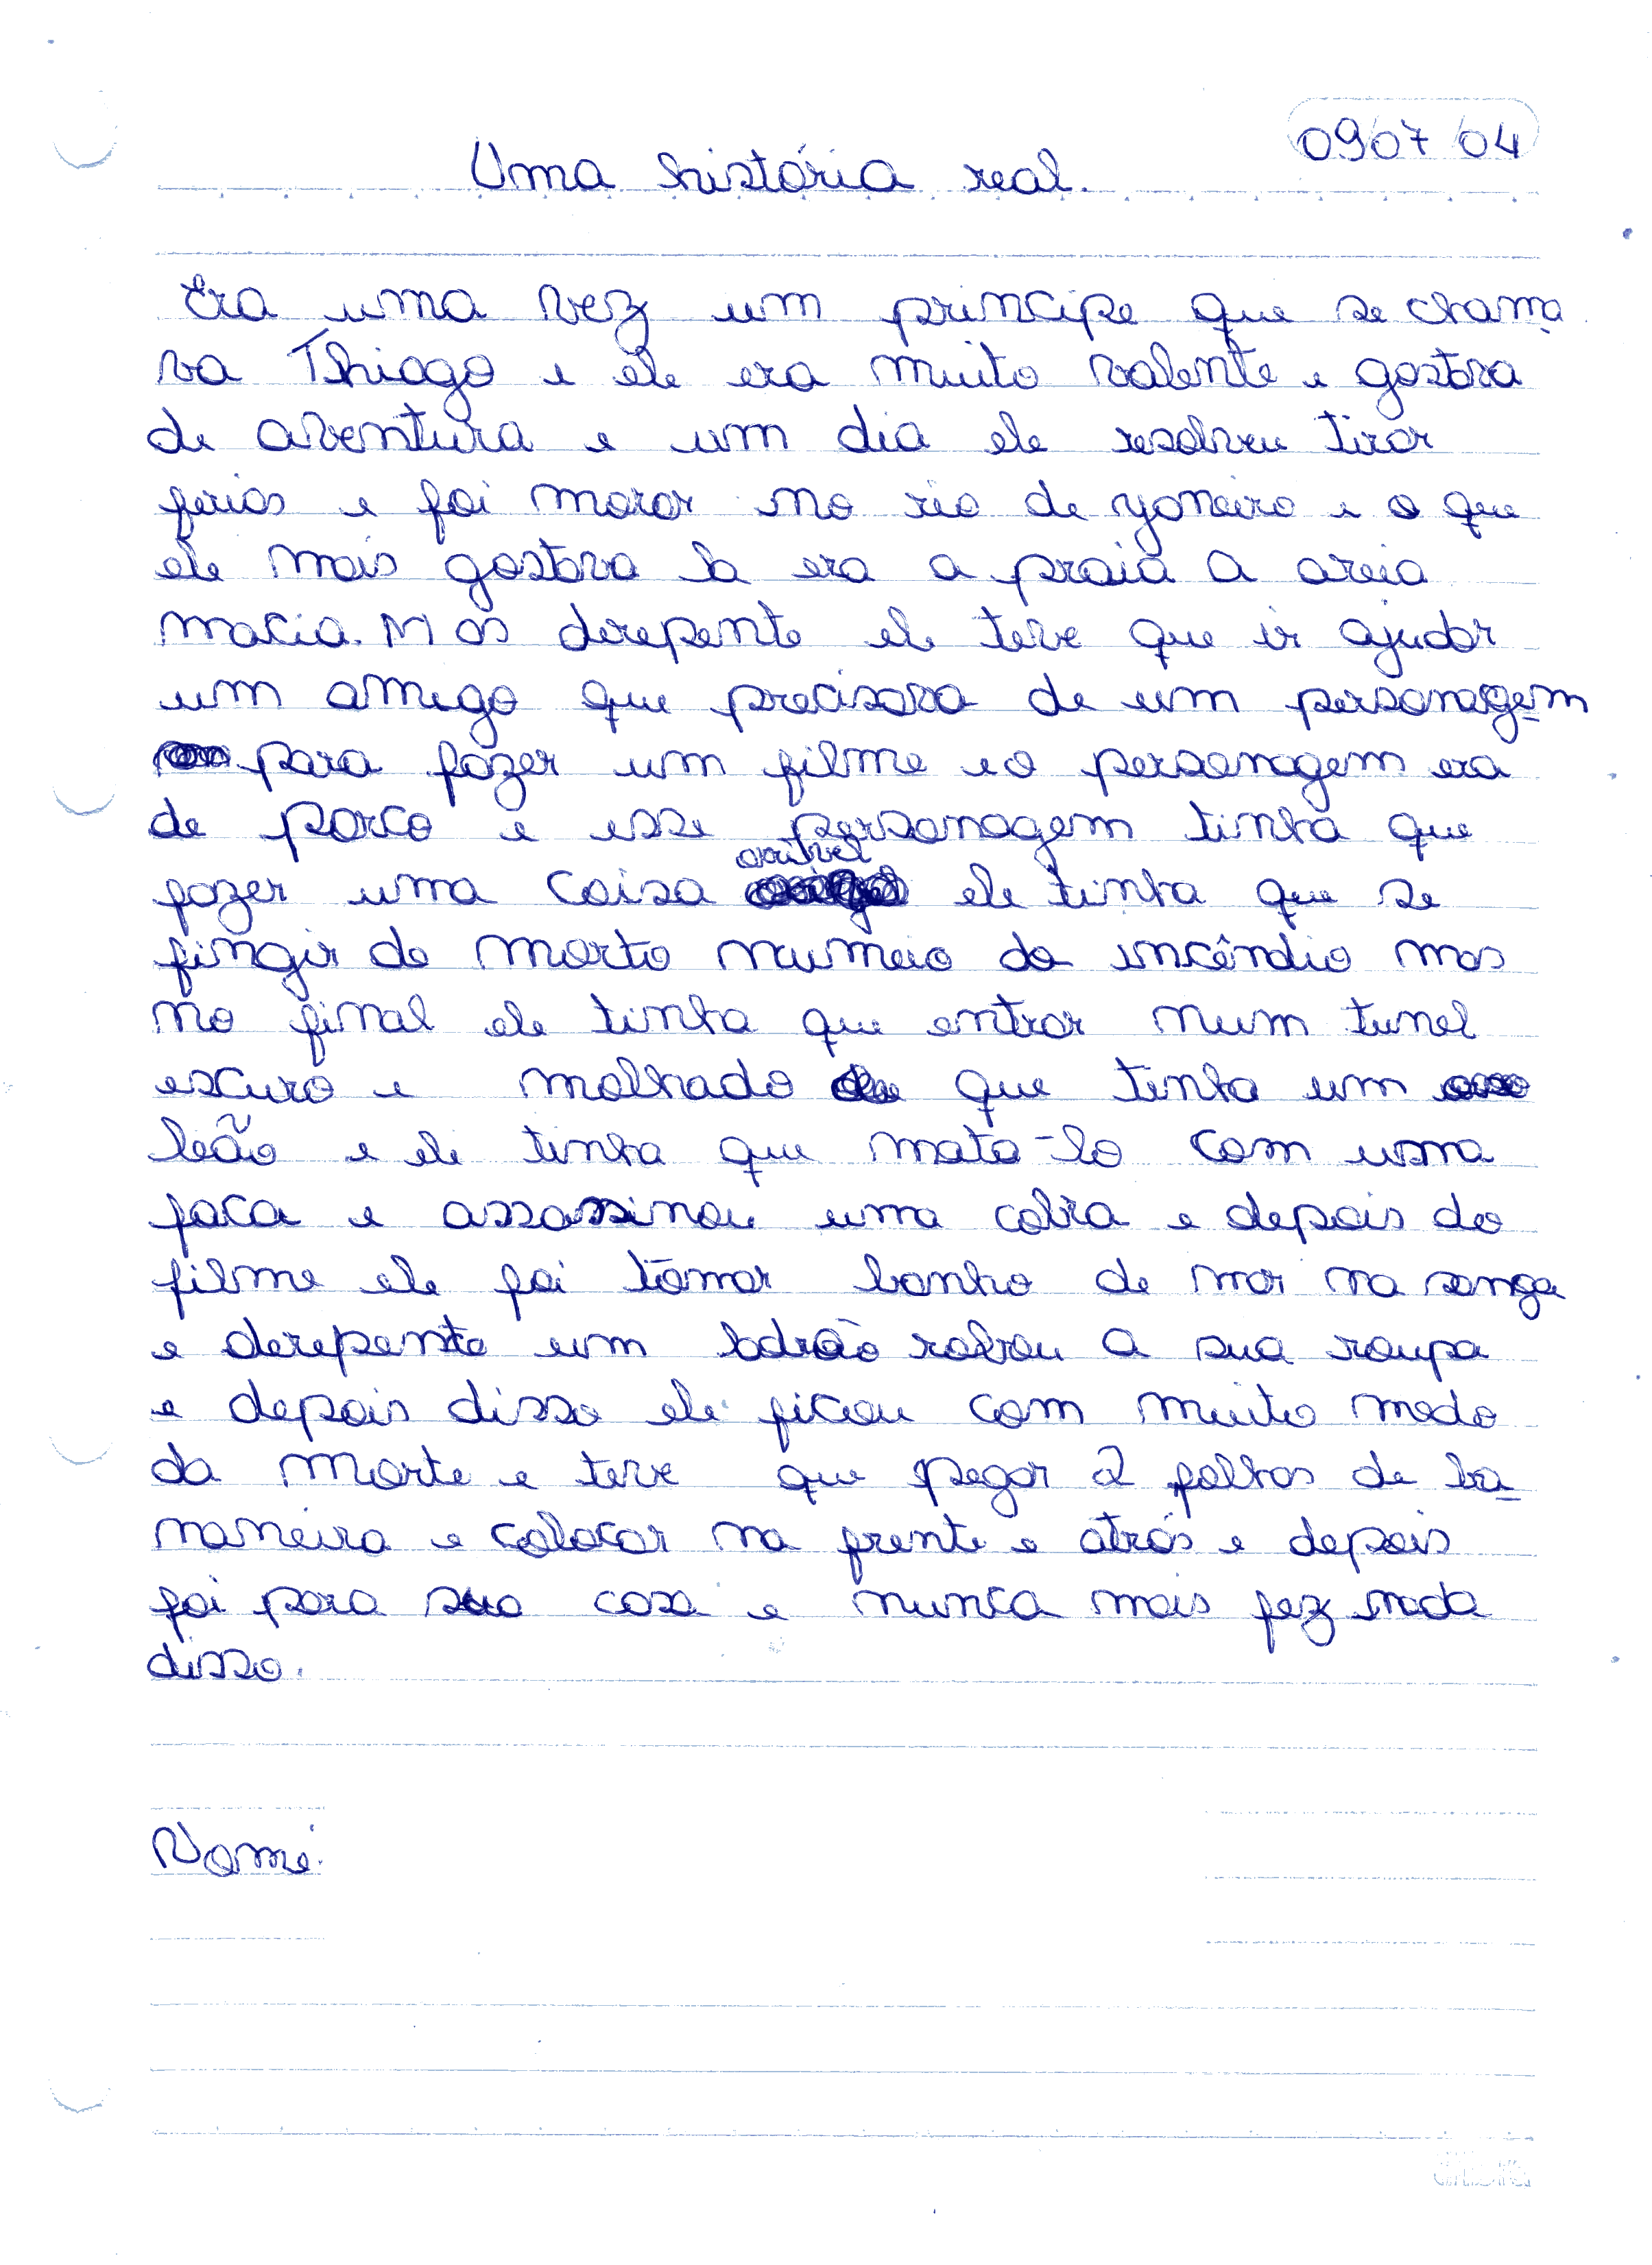 090704
Uma história real.
Era uma vez um principe que se chama
va Thiago e ele era muito valente e gostava
de aventura e um dia ele resolveu tirar
ferias e foi morar no rio de yaneiro e o que
ele mais gostava la era a praia a areia
macia. Mas derepente ele teve que ir ajudar
um amigo que precisava de um personagem
para fazer um filme e o personagem era
de porco e esse personagem tinha que
orivel
fazer uma coisa ele tinha que se
fingir de morto nu meio do incêndio mas
no final ele tinha que entrar num tunel
escuro e molhado que tinha um
leão e ele tinha que mata-lo com uma
faca e assassinou uma cobra e depois do
filme ele foi tomar banho de mar na sunga
e derepente um ladrão robou a sua roupa
e depois disso ele ficou com muito medo
da morte e teve que pegar 2 folhas de ba-
naneira e colocar na frente e atrás e depois
foi para sua casa e nunca mais fez nada
disso.
Nome: